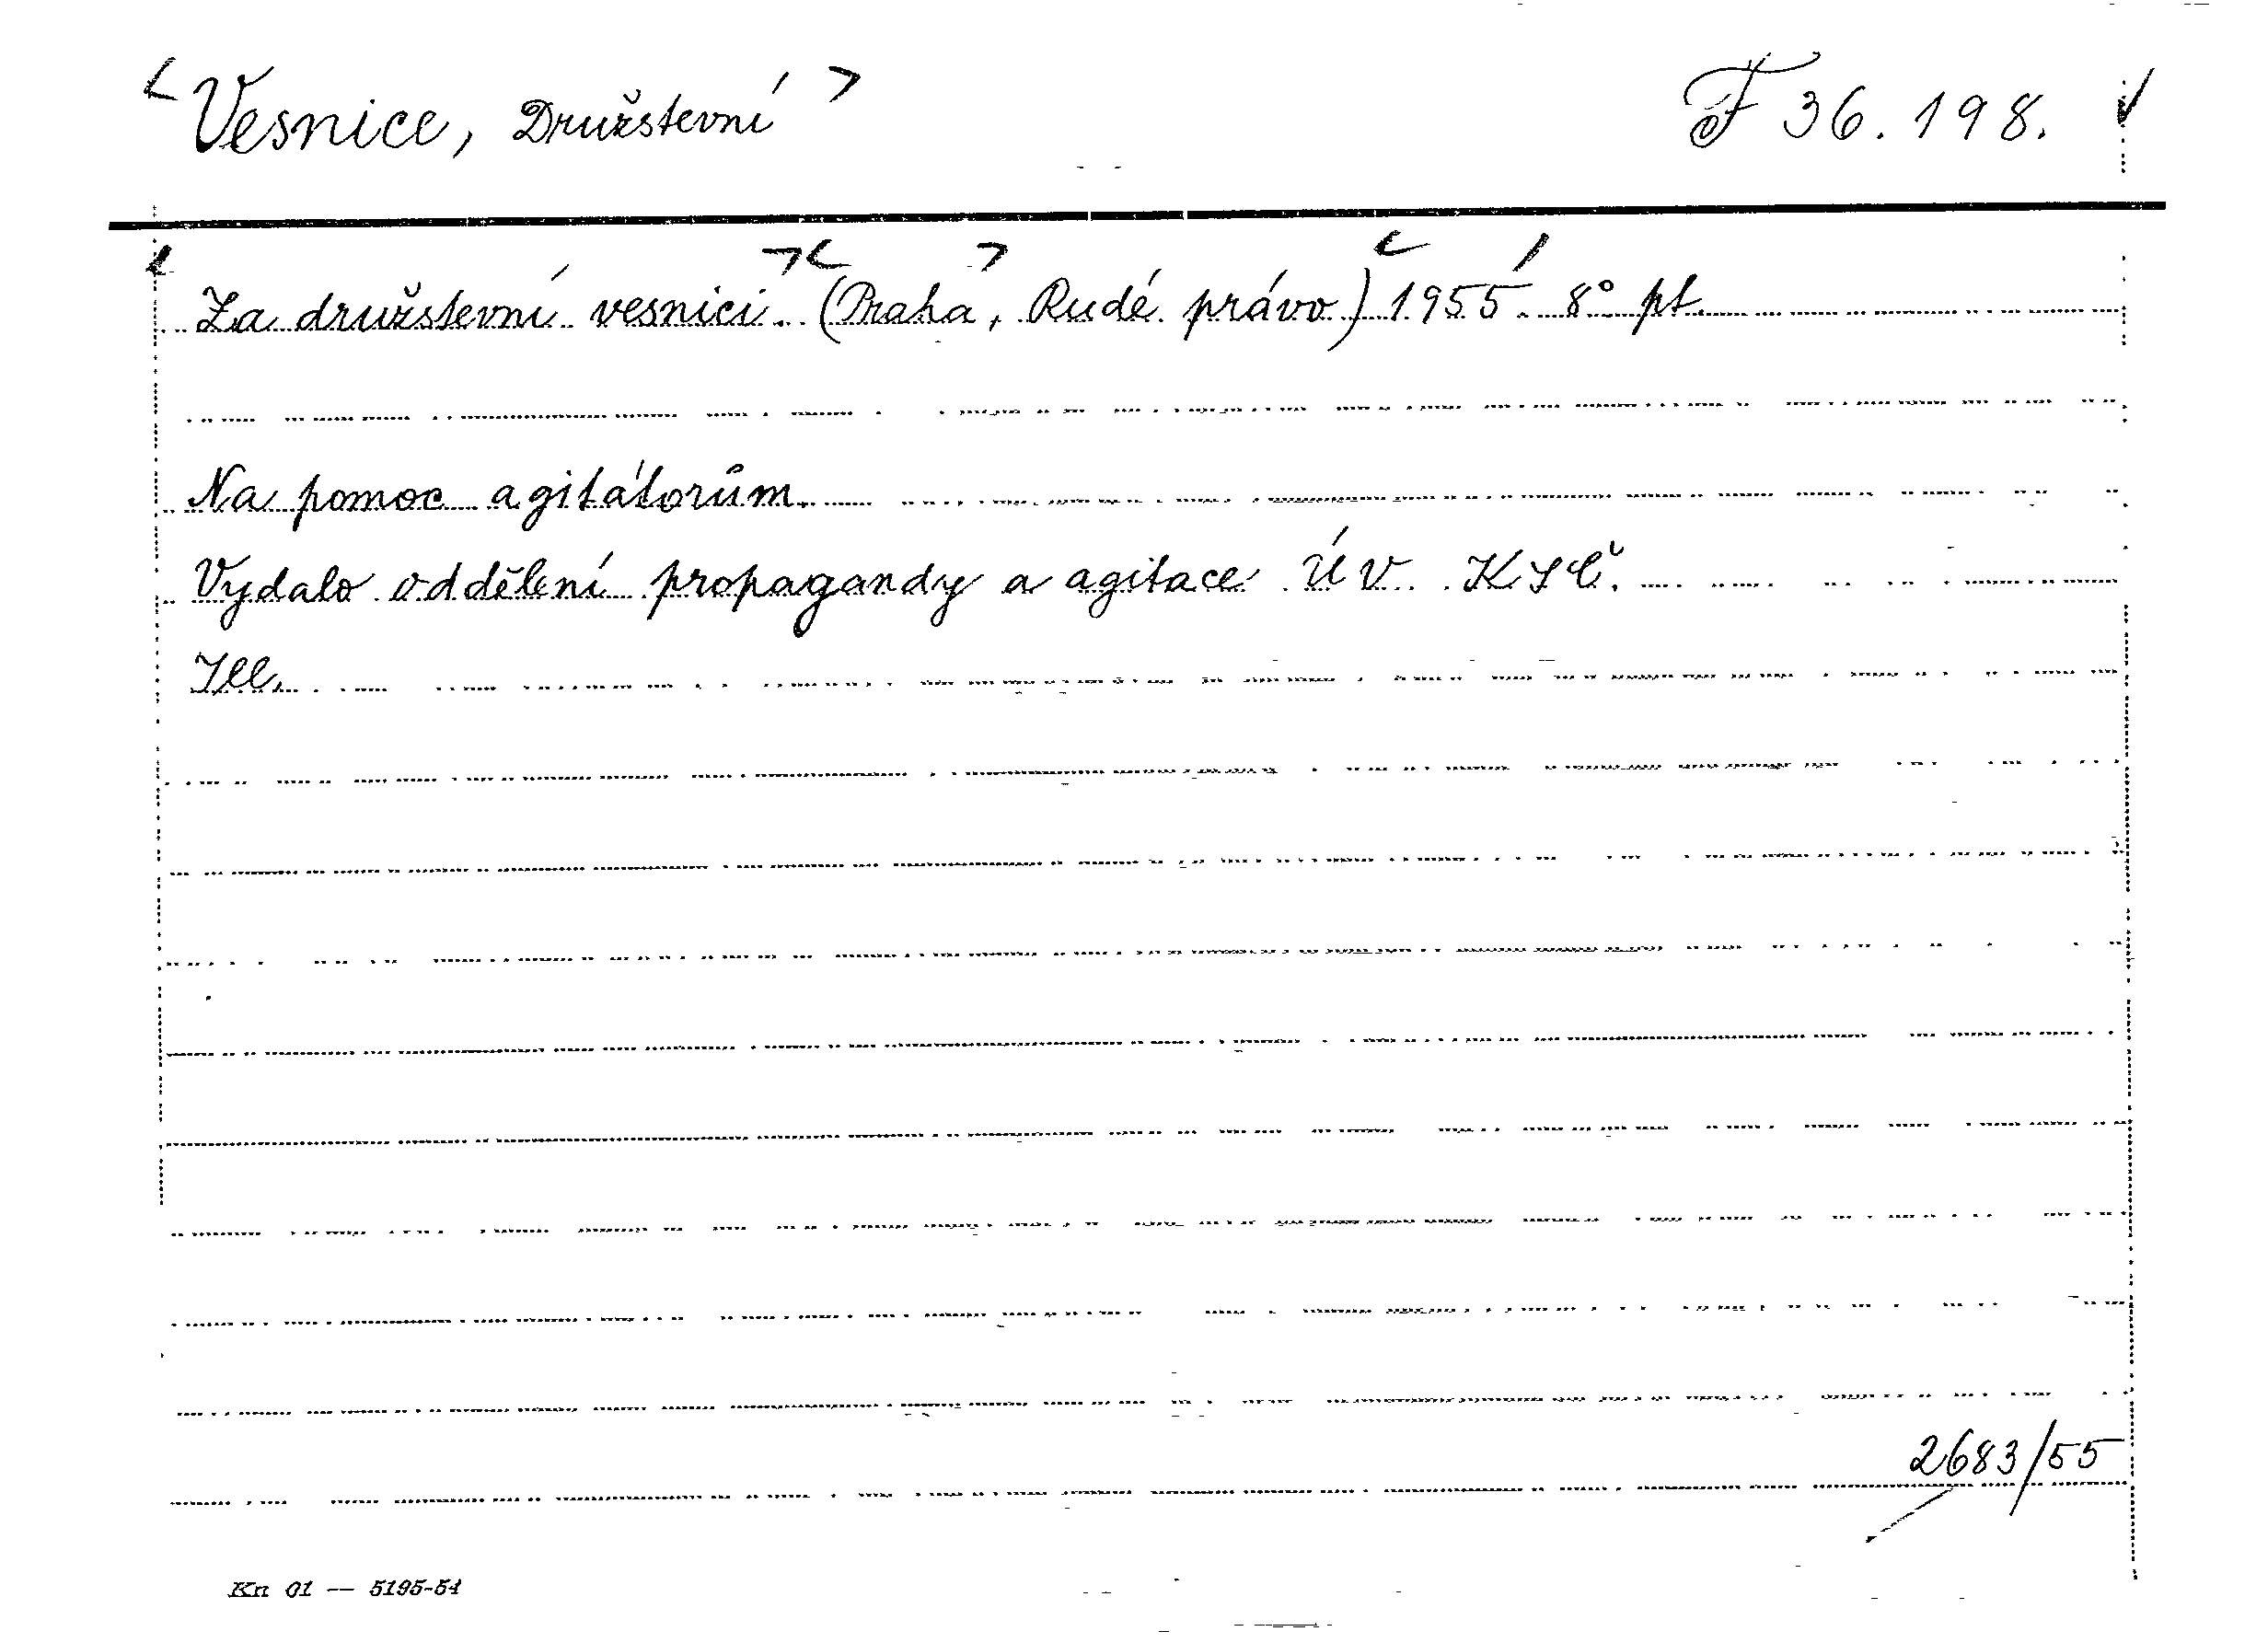 Vesnice, Družstevní F 36.198.
Za družstevní vesnici. (Praha, Rudé právo) 1955. 8° pt.
Na pomoc agitátorům.
Vydalo oddělení propagandy a agitace ÚV KSČ.
Ill.
2683/55
Kn 01 — 5195-54